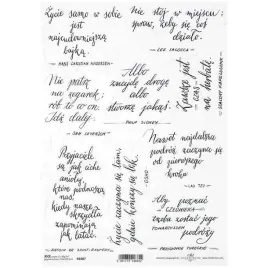 Życie samo w sobie
jest
najcudowniejszą
bajką.
HANS CHRISTIAN ANDERSEN
Nie stój w miejscu;
spraw, żeby się coś
działo.
LEE IACOCCA
Nie patrz
na zegarek;
rób to co on.
Idź dalej.
SAM LEVENSON
Albo
znajdę drogę
albo
stworzę jakąś.
PHILIP SIDNEY
Zawsze jest
czas
na herbatę
Przyjaciele
są jak ciche
anioły,
które podnoszą
nas,
kiedy nasze
skrzydła
zapominają
jak latać.
ANTOINE DE SAINT-EXUPÉRY
życie zaczyna się tam,
gdzie kończy się lęk.
OSHO
Nawet najdalszą
podróż zaczyna się
od pierwszego
kroku
LAO TSY
Aby poznać
człowieka
trzeba zostać jego
towarzyszem
podróży
PRZYSŁOWIE TURECKIE